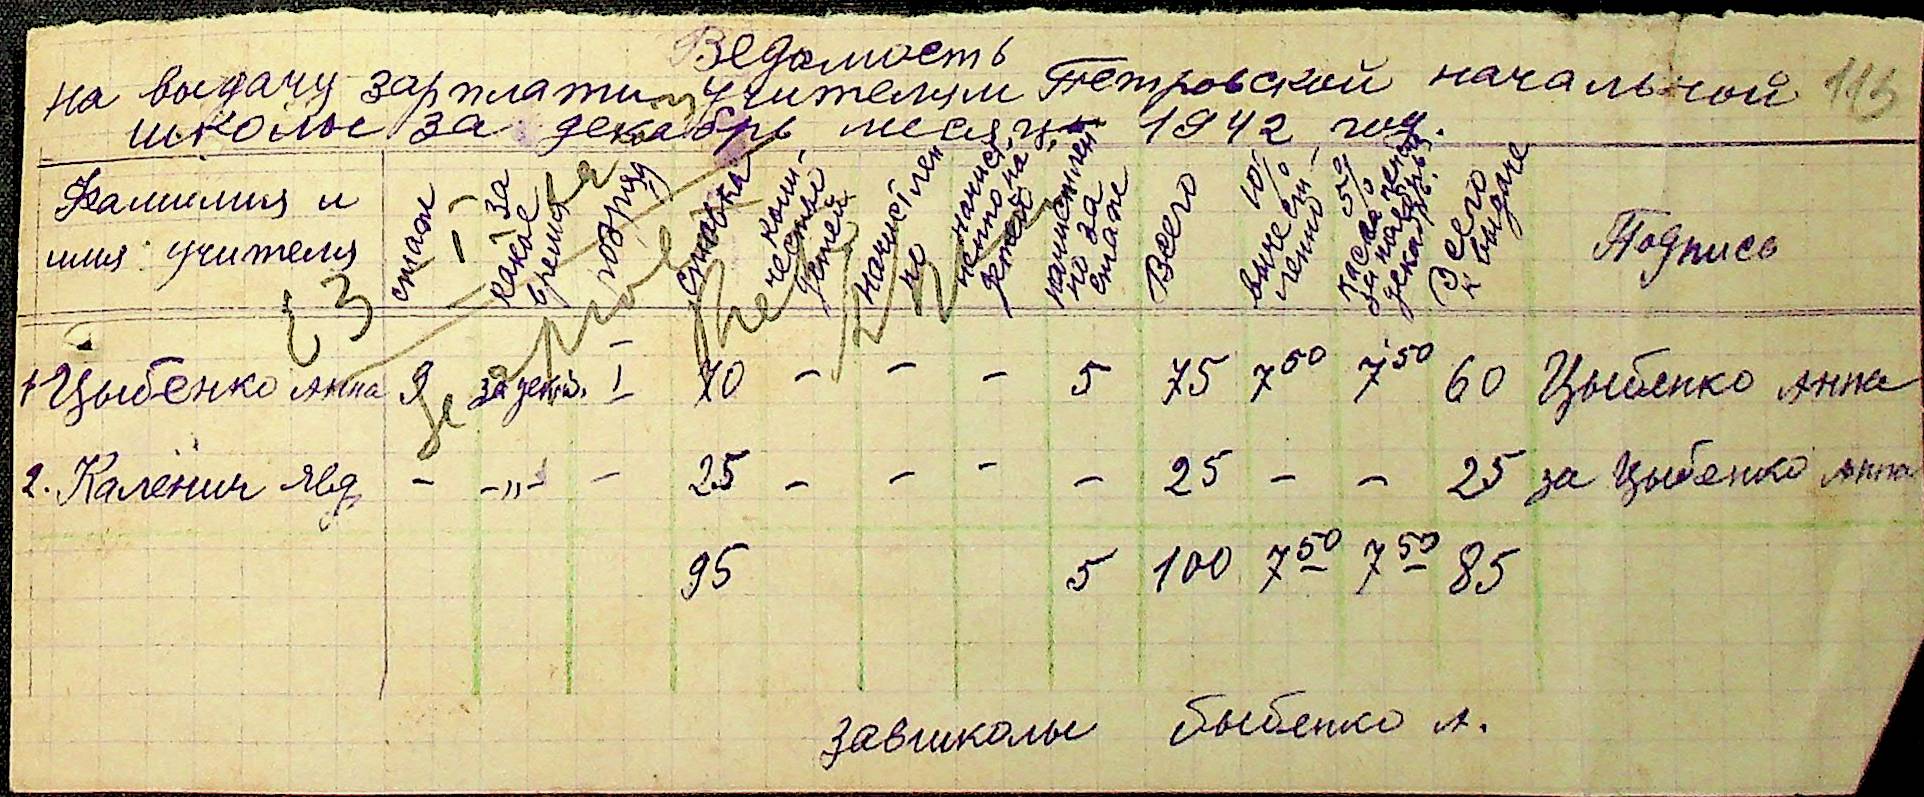 Ведомость
на выдачу зарплати учителям Петровской начальной 113
школы за декабрь месяць 1942 год.
Фамилия и имя учителя стаж за какое время розряд ставка количество детей начислено начислено на детей начислен по за стаж Всего 10% вычесленно касса 5% за ноябрь декабрь. Всего к выдаче Подпись
1. Цыбенко Анна 9 за декаб. I 70 - - - 5 75 7 50 7 50 60 Цыбенко Анна
2. Каленич Явд - -"- - 25 - - - - 25 - - 25 за Цыбенко Анна
95 5 100 7 50 7 50 85
Завшколы Цыбенко А.